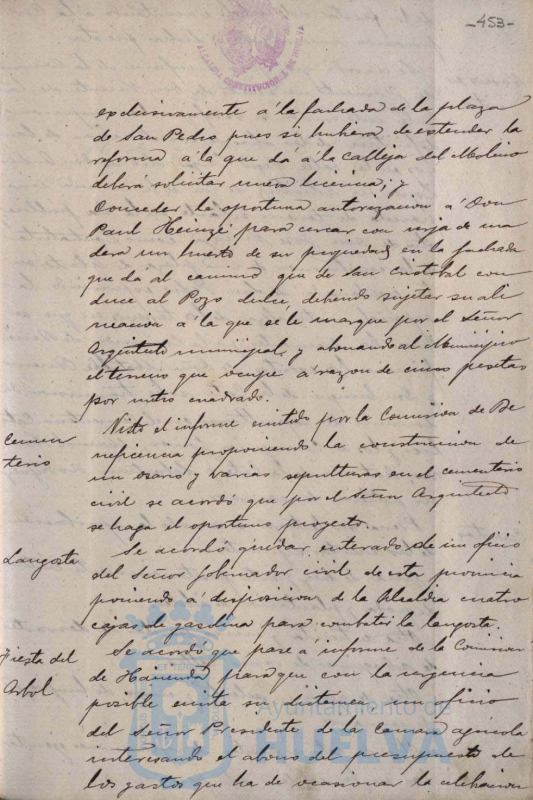 -453-
ALCALDIA CONSTITUCIONAL DE HUELVA
exclusivamente á la fachada de la plaza
de San Pedro pues si hubiera de extender la
reforma á la que dá á la Calleja del Molino
deberá solicitar nueva licencia; y
Conceder la oportuna autorizacion á Don
Paul Heinzé para cercar con verja de ma
dera un huerto de su propiedad en la fachada
que da al camino que de San Cristobal con
duce al Pozo dulce, debiendo sujetar su ali
neacion á la que se le marque por el Señor
Arquitecto municipal, y abonando al Municipio
el terreno que ocupe á razon de cinco pesetas
por metro cuadrado.
Cemen
terio
Visto el informe emitido por la Comision de Be
neficencia proponiendo la construccion de
un osario y varias sepulturas en el cementerio
civil se acordó que por el Señor Arquitecto
se haga el oportuno proyecto.
Langosta
Se acordó quedar enterado de un oficio
del Señor Gobernador civil de esta provincia
poniendo á disposicion de la Alcaldia cuatro
cajas de gasolina para combatir la langosta.
Fiesta del
Arbol
Se acordó que pase á informe de la Comision
de Hacienda para que con la urgencia
posible emita su dictamen un oficio
del Señor Presidente de la Camara agricola
interesando el abono del presupuesto de
los gastos que ha de ocasionar la celebracion
Ayuntamiento de
HUELVA